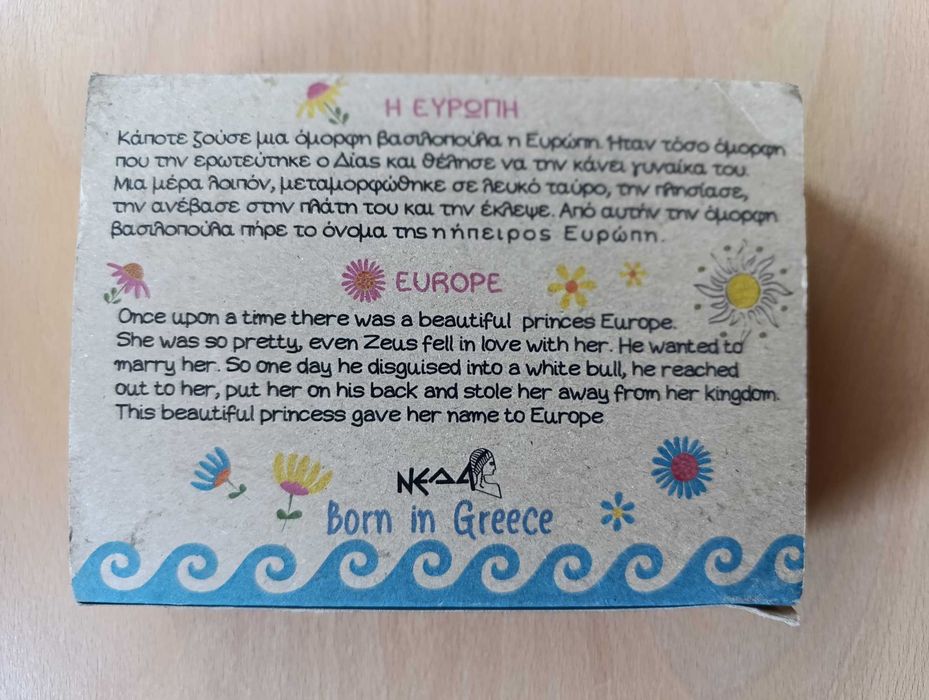 Η ΕΥΡΩΠΗ
Κάποτε ζούσε μια όμορφη βασιλοπούλα η Ευρώπη. Ήταν τόσο όμορφη
που την ερωτεύτηκε ο Δίας και θέλησε να την κάνει γυναίκα του.
Μια μέρα λοιπόν, μεταμορφώθηκε σε λευκό ταύρο, την πλησίασε,
την ανέβασε στην πλάτη του και την έκλεψε. Από αυτήν την όμορφη
βασιλοπούλα πήρε το όνομα της η ήπειρος Ευρώπη.
EUROPE
Once upon a time there was a beautiful princes Europe.
She was so pretty, even Zeus fell in love with her. He wanted to
marry her. So one day he disguised into a white bull, he reached
out to her, put her on his back and stole her away from her kingdom.
This beautiful princess gave her name to Europe
ΝΕΔΑ
Born in Greece